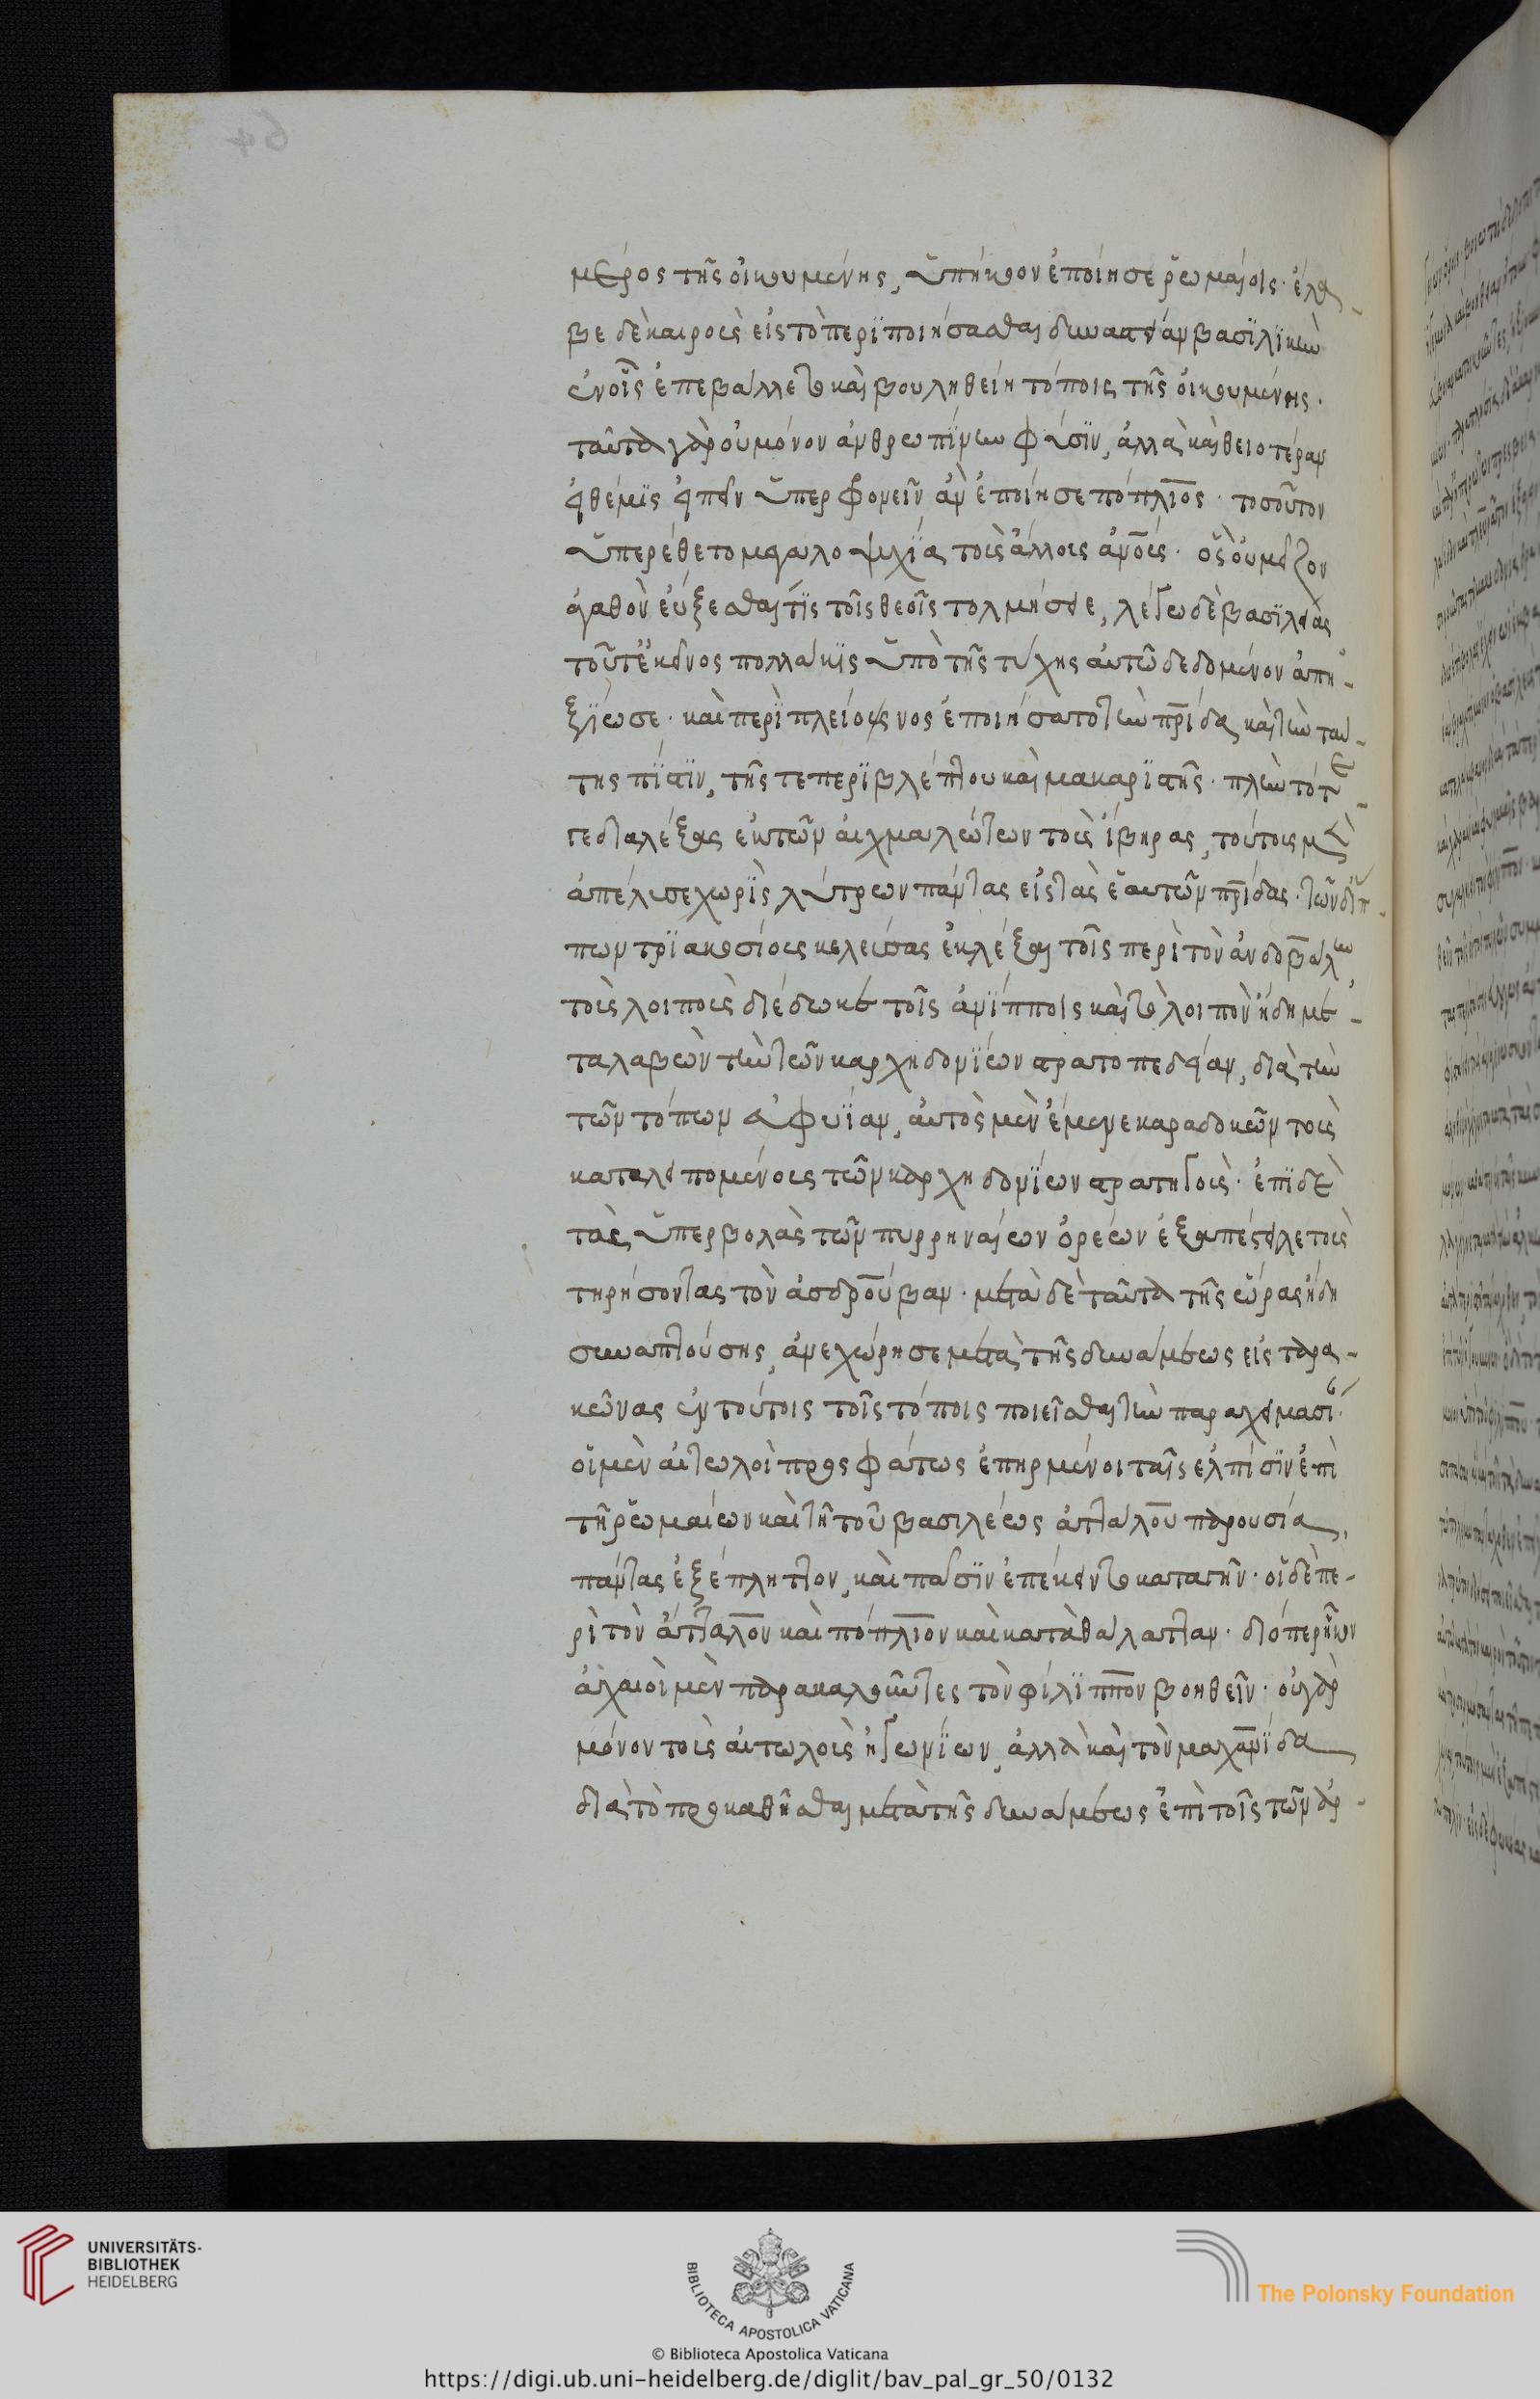 64
μέρος τῆς οἰκουμένης, ὑπήκοον ἐποίησε ῥωμαίοις· ἔλα-
βε δὲ καιροὺς εἰς τὸ περϊποιήσασθαι δυναστείαν βασϊλϊκὴν
ἐν οἷς ἐπεβάλλετο καὶ βουληθείη τόποις τῆς οἰκουμένης·
ταῦτα γὰρ οὐ μόνον ἀνθρωπίνην φύσϊν, ἀλλὰ καὶ θειοτέραν
εἰ θέμϊς εἰπεῖν ὑπερφρονεῖν ἂν ἐποίησε πόπλιος· τοσοῦτον
ὑπερέθετο μεγαλοψυχίᾳ τοὺς ἄλλους ἀνους· ὃς οὗ μεῖζον
ἀγαθὸν εὔξεσθαι τϊς τοῖς θεοῖς τολμήσειε, λέγω δὲ βασϊλείας
τοῦτ' ἐκεῖνος πολλάκϊς ὑπὸ τῆς τύχης αὐτῷ δεδομένον ἀπη-
ξϊωσε· καὶ περὶ πλείονος ἐποιήσατο τὴν πρίδα καὶ τὴν ταύ-
της πίστϊν, τῆς τε περϊβλέπτου καὶ μακαρϊστῆς· πλὴν τότε
γε διαλέξας ἐκ τῶν αἰχμαλώτων τοὺς ἴβηρας, τούτους μὲν
ἀπέλυσε χωρὶς λύτρων πάντας εἰς τὰς ἑαυτῶν πρίδας· τῶν δ' ἵπ-
πων τρϊακοσίους κελεύσας ἐκλέξαι τοῖς περὶ τὸν ἀνδοβάλην
τοὺς λοιποὺς διέδωκε τοῖς ἀνίπποις καὶ τὸ λοιπὸν ἤδη με-
ταλαβὼν τὴν τῶν καρχηδονϊων στρατοπεδείαν, διὰ τὴν
τῶν τόπων εὐφυϊαν, αὐτὸς μὲν ἔμενε καραδοκῶν τοὺς
καταλειπομένους τῶν καρχηδονϊων στρατηγούς· ἐπϊ δὲ
τὰς ὑπερβολὰς τῶν πυρρηναίων ὀρέων ἐξαπέστειλε τοὺς
τηρήσοντας τὸν ἀσδρούβαν· μετὰ δὲ ταῦτα τῆς ὥρας ἤδη
συναπτούσης, ἀνεχώρησε μετὰ τῆς δυνάμεως εἰς ταρα-
κῶνας ἐν τούτοις τοῖς τόποις ποιεῖσθαι τὴν παραχειμασί·
οἱ μὲν αἰτωλοὶ προσφάτως ἐπηρμένοι ταῖς ἐλπίσϊν ἐπὶ
τῇ ῥωμαίων καὶ τῇ τοῦ βασιλέως ἀττάλου παρουσία,
πάντας ἐξέπληττον, καὶ πᾶσϊν ἐπέκειντο κατὰ γῆν· οἱ δὲ πε-
ρὶ τὸν ἄτταλον καὶ πόπλιον καὶ κατὰ θάλατταν· διόπερ ἧκον
ἀχαιοὶ μὲν παρακαλοῦντες τὸν φίλϊππον βοηθεῖν· οὐ γὰρ
μόνον τοὺς αἰτωλοὺς ἠγωνϊων, ἀλλὰ καὶ τὸν μαχανϊδα
διὰ τὸ προκαθῆσθαι μετὰ τῆς δυνάμεως ἐπὶ τοῖς τῶν ἀρ-
UNIVERSITÄTS-
BIBLIOTHEK
HEIDELBERG
BIBLIOTECA APOSTOLICA VATICANA
The Polonsky Foundation
© Biblioteca Apostolica Vaticana
https://digi.ub.uni-heidelberg.de/diglit/bav_pal_gr_50/0132